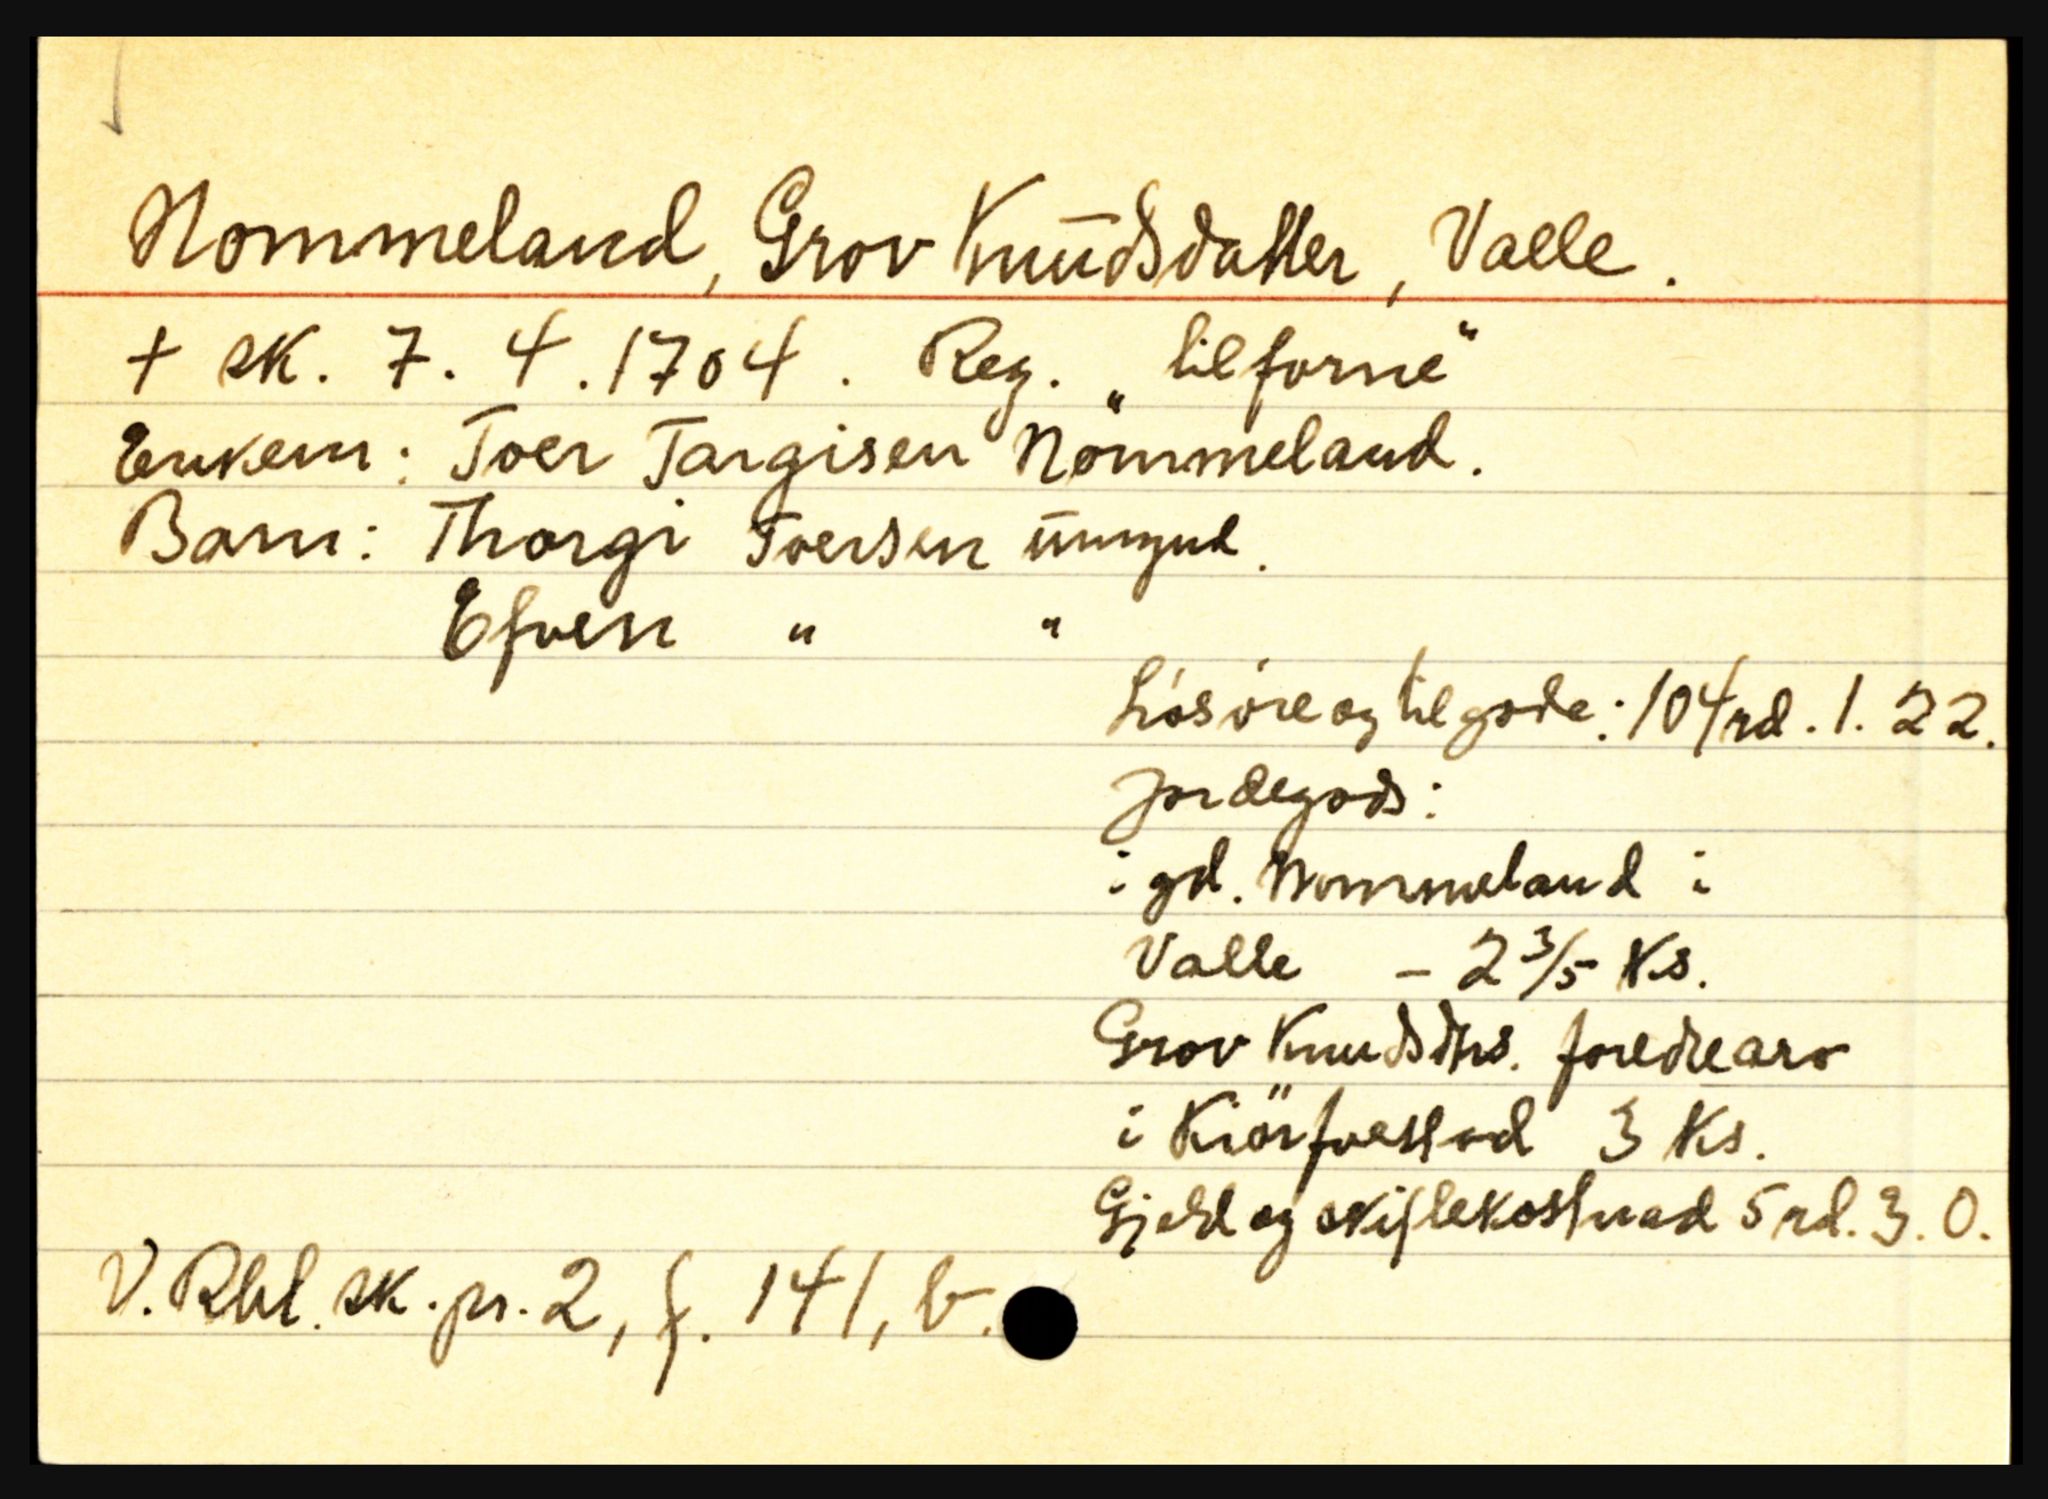 Nommeland, Grov Knūdsdatter, Valle.
+ sk. 7. 4. 1704. Reg. „tilforne“
Enkem: Toer Targisen Nömmeland.
Barn: Thorgi Toersen ūmynd.
Efven " "
Lösöre og tilgode: 104 rd. 1. 22.
Jordegods:
i gd. Nommeland i
Valle - 2 3/5 Ks.
Grov Knudsdtrs. foredrearv
i Kiörfvestad 3 Ks.
Gjeld og skiftekostnad 5 rd. 3. 0.
V. Rbl. sk. pr. 2, f. 141, b.